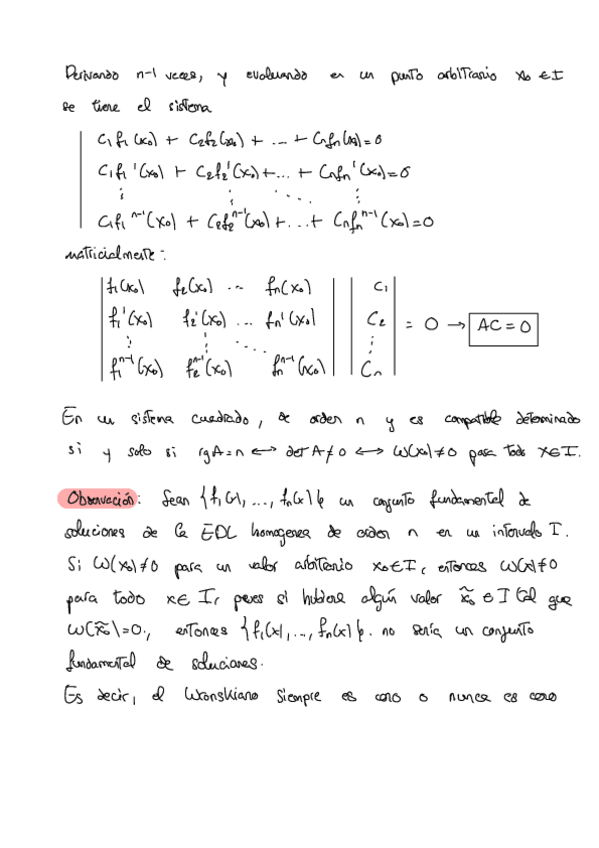 Derivando n-1 veces, y evaluando en un punto arbitrario x₀ ∈ I
se tiene el sistema
C₁f₁(x₀) + C₂f₂(x₀) + ... + Cₙfₙ(x₀) = 0
C₁f₁'(x₀) + C₂f₂'(x₀) + ... + Cₙfₙ'(x₀) = 0
⋮ ⋮ ⋱ ⋮
C₁f₁ⁿ⁻¹(x₀) + C₂f₂ⁿ⁻¹(x₀) + ... + Cₙfₙⁿ⁻¹(x₀) = 0
matricialmente:
| f₁(x₀) f₂(x₀) ... fₙ(x₀) | | C₁ |
| f₁'(x₀) f₂'(x₀) ... fₙ'(x₀) | | C₂ | = 0 → AC = 0
⋮ ⋮ ⋱ ⋮
| f₁ⁿ⁻¹(x₀) f₂ⁿ⁻¹(x₀) fₙⁿ⁻¹(x₀) | | Cₙ |
En un sistema cuadrado, de orden n y es compatible determinado
si y solo si rgA = n ⟷ det A ≠ 0 ⟷ W(x₀) ≠ 0 para todo x ∈ I.
Observación: Sean {f₁(x), ..., fₙ(x)} un conjunto fundamental de
soluciones de la EDL homogenea de orden n en un intervalo I.
Si W(x₀) ≠ 0 para un valor arbitrario x₀ ∈ I, entonces W(x) ≠ 0
para todo x ∈ I, pues si hubiera algún valor x̃₀ ∈ I tal que
W(x̃₀) = 0, entonces {f₁(x), ..., fₙ(x)}. no sería un conjunto
fundamental de soluciones.
Es decir, el Wronskiano siempre es cero o nunca es cero